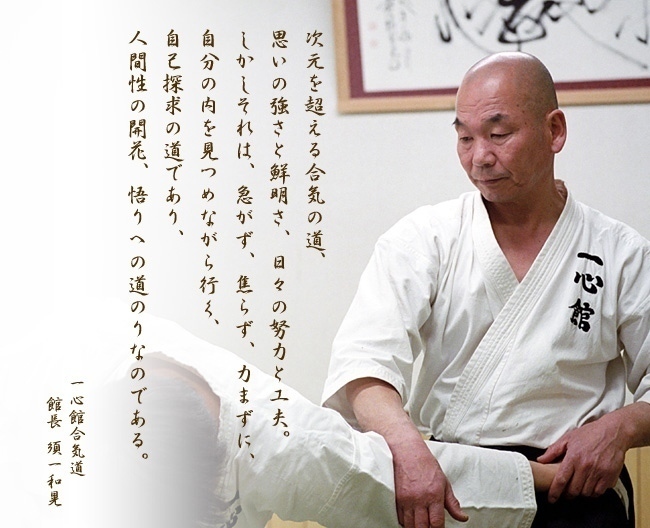 次元を超える合気の道、
思いの強さと鮮明さ、日々の努力と工夫。
しかしそれは、急がず、焦らず、力まずに、
自分の内を見つめながら行く、
自己探求の道であり、
人間性の開花、悟りへの道のりなのである。
一心館合気道
館長 須一和晃
一心館